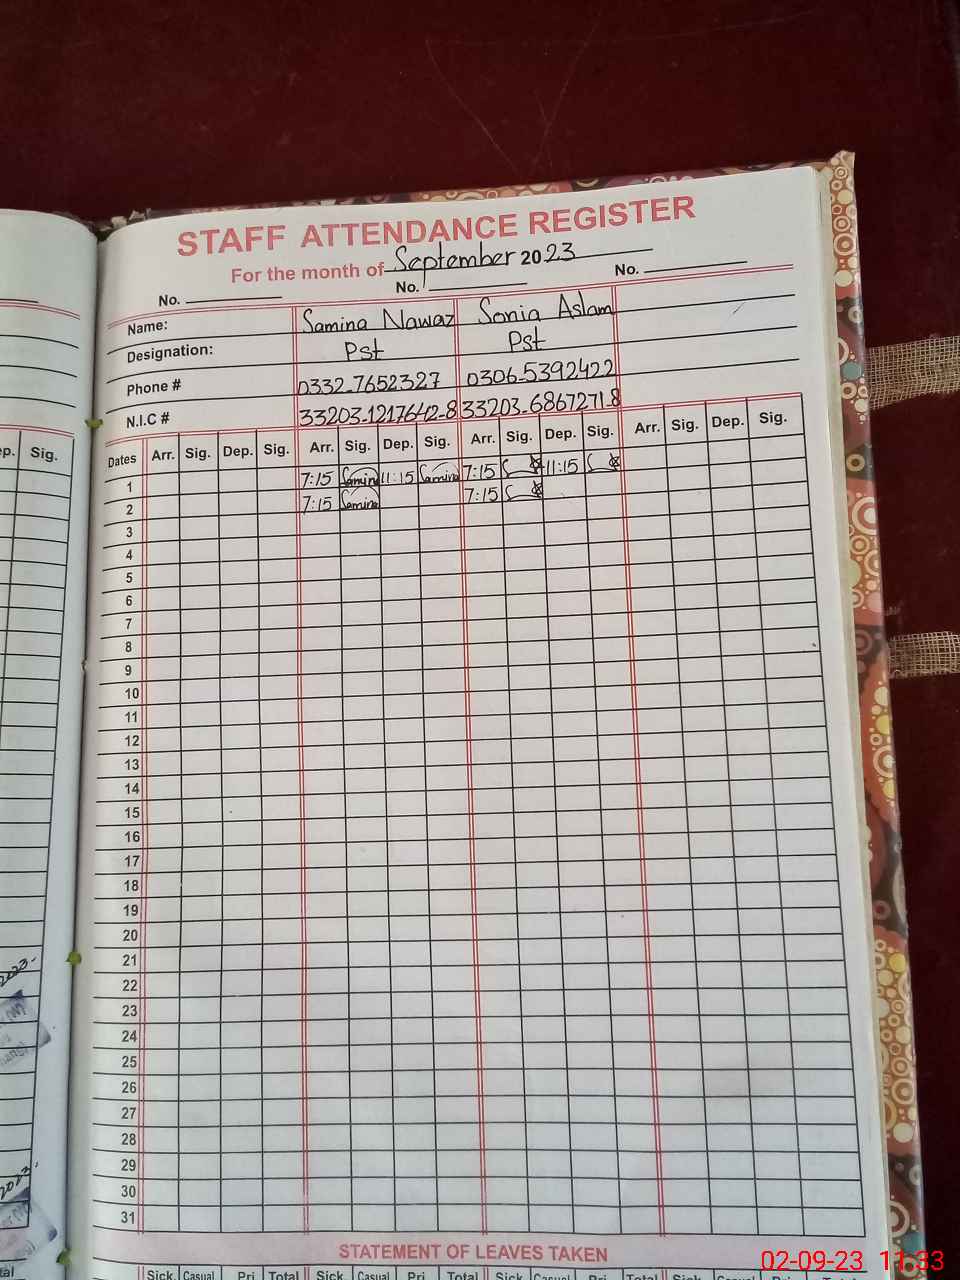 STAFF ATTENDANCE REGISTER
For the month of September 2023
No. No. No.
Name: Samina Nawaz Sonia Aslam
Designation: Pst Pst
Phone # 0332-7652327 0306-5392422
N.I.C # 33203-1217642-8 33203-6867271.8
Dates Arr. Sig. Dep. Sig. Arr. Sig. Dep. Sig. Arr. Sig. Dep. Sig. Arr. Sig. Dep. Sig.
1 7:15 Samina 11:15 Samina 7:15 11:15
2 7:15 Samina 7:15
3
4
5
6
7
8
9
10
11
12
13
14
15
16
17
18
19
20
21
22
23
24
25
26
27
28
29
30
31
STATEMENT OF LEAVES TAKEN
Sick. Casual Pri Total Sick. Casual Pri. Total Sick. Casual Pri. Total Sick. Casual Pri.
Sig.
2023-
02-09-23 11:33